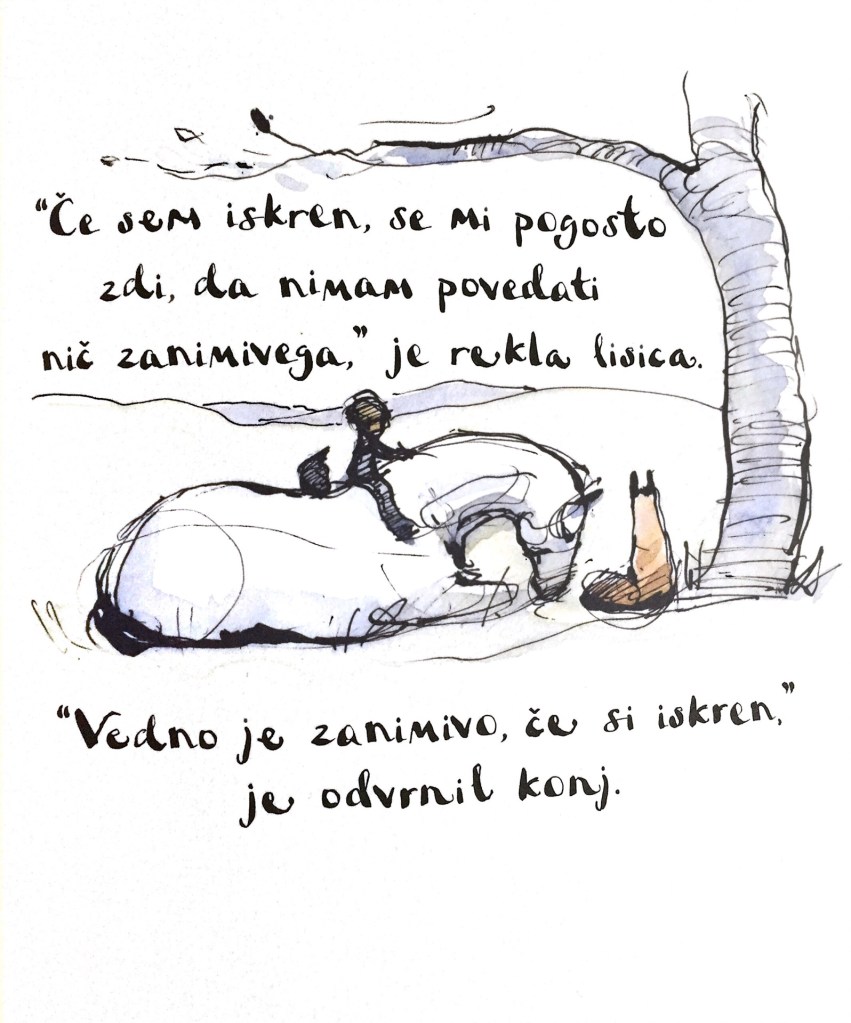 “Če sem iskren, se mi pogosto
zdi, da nimam povedati
nič zanimivega,” je rekla lisica.
“Vedno je zanimivo, če si iskren,”
je odvrnil konj.